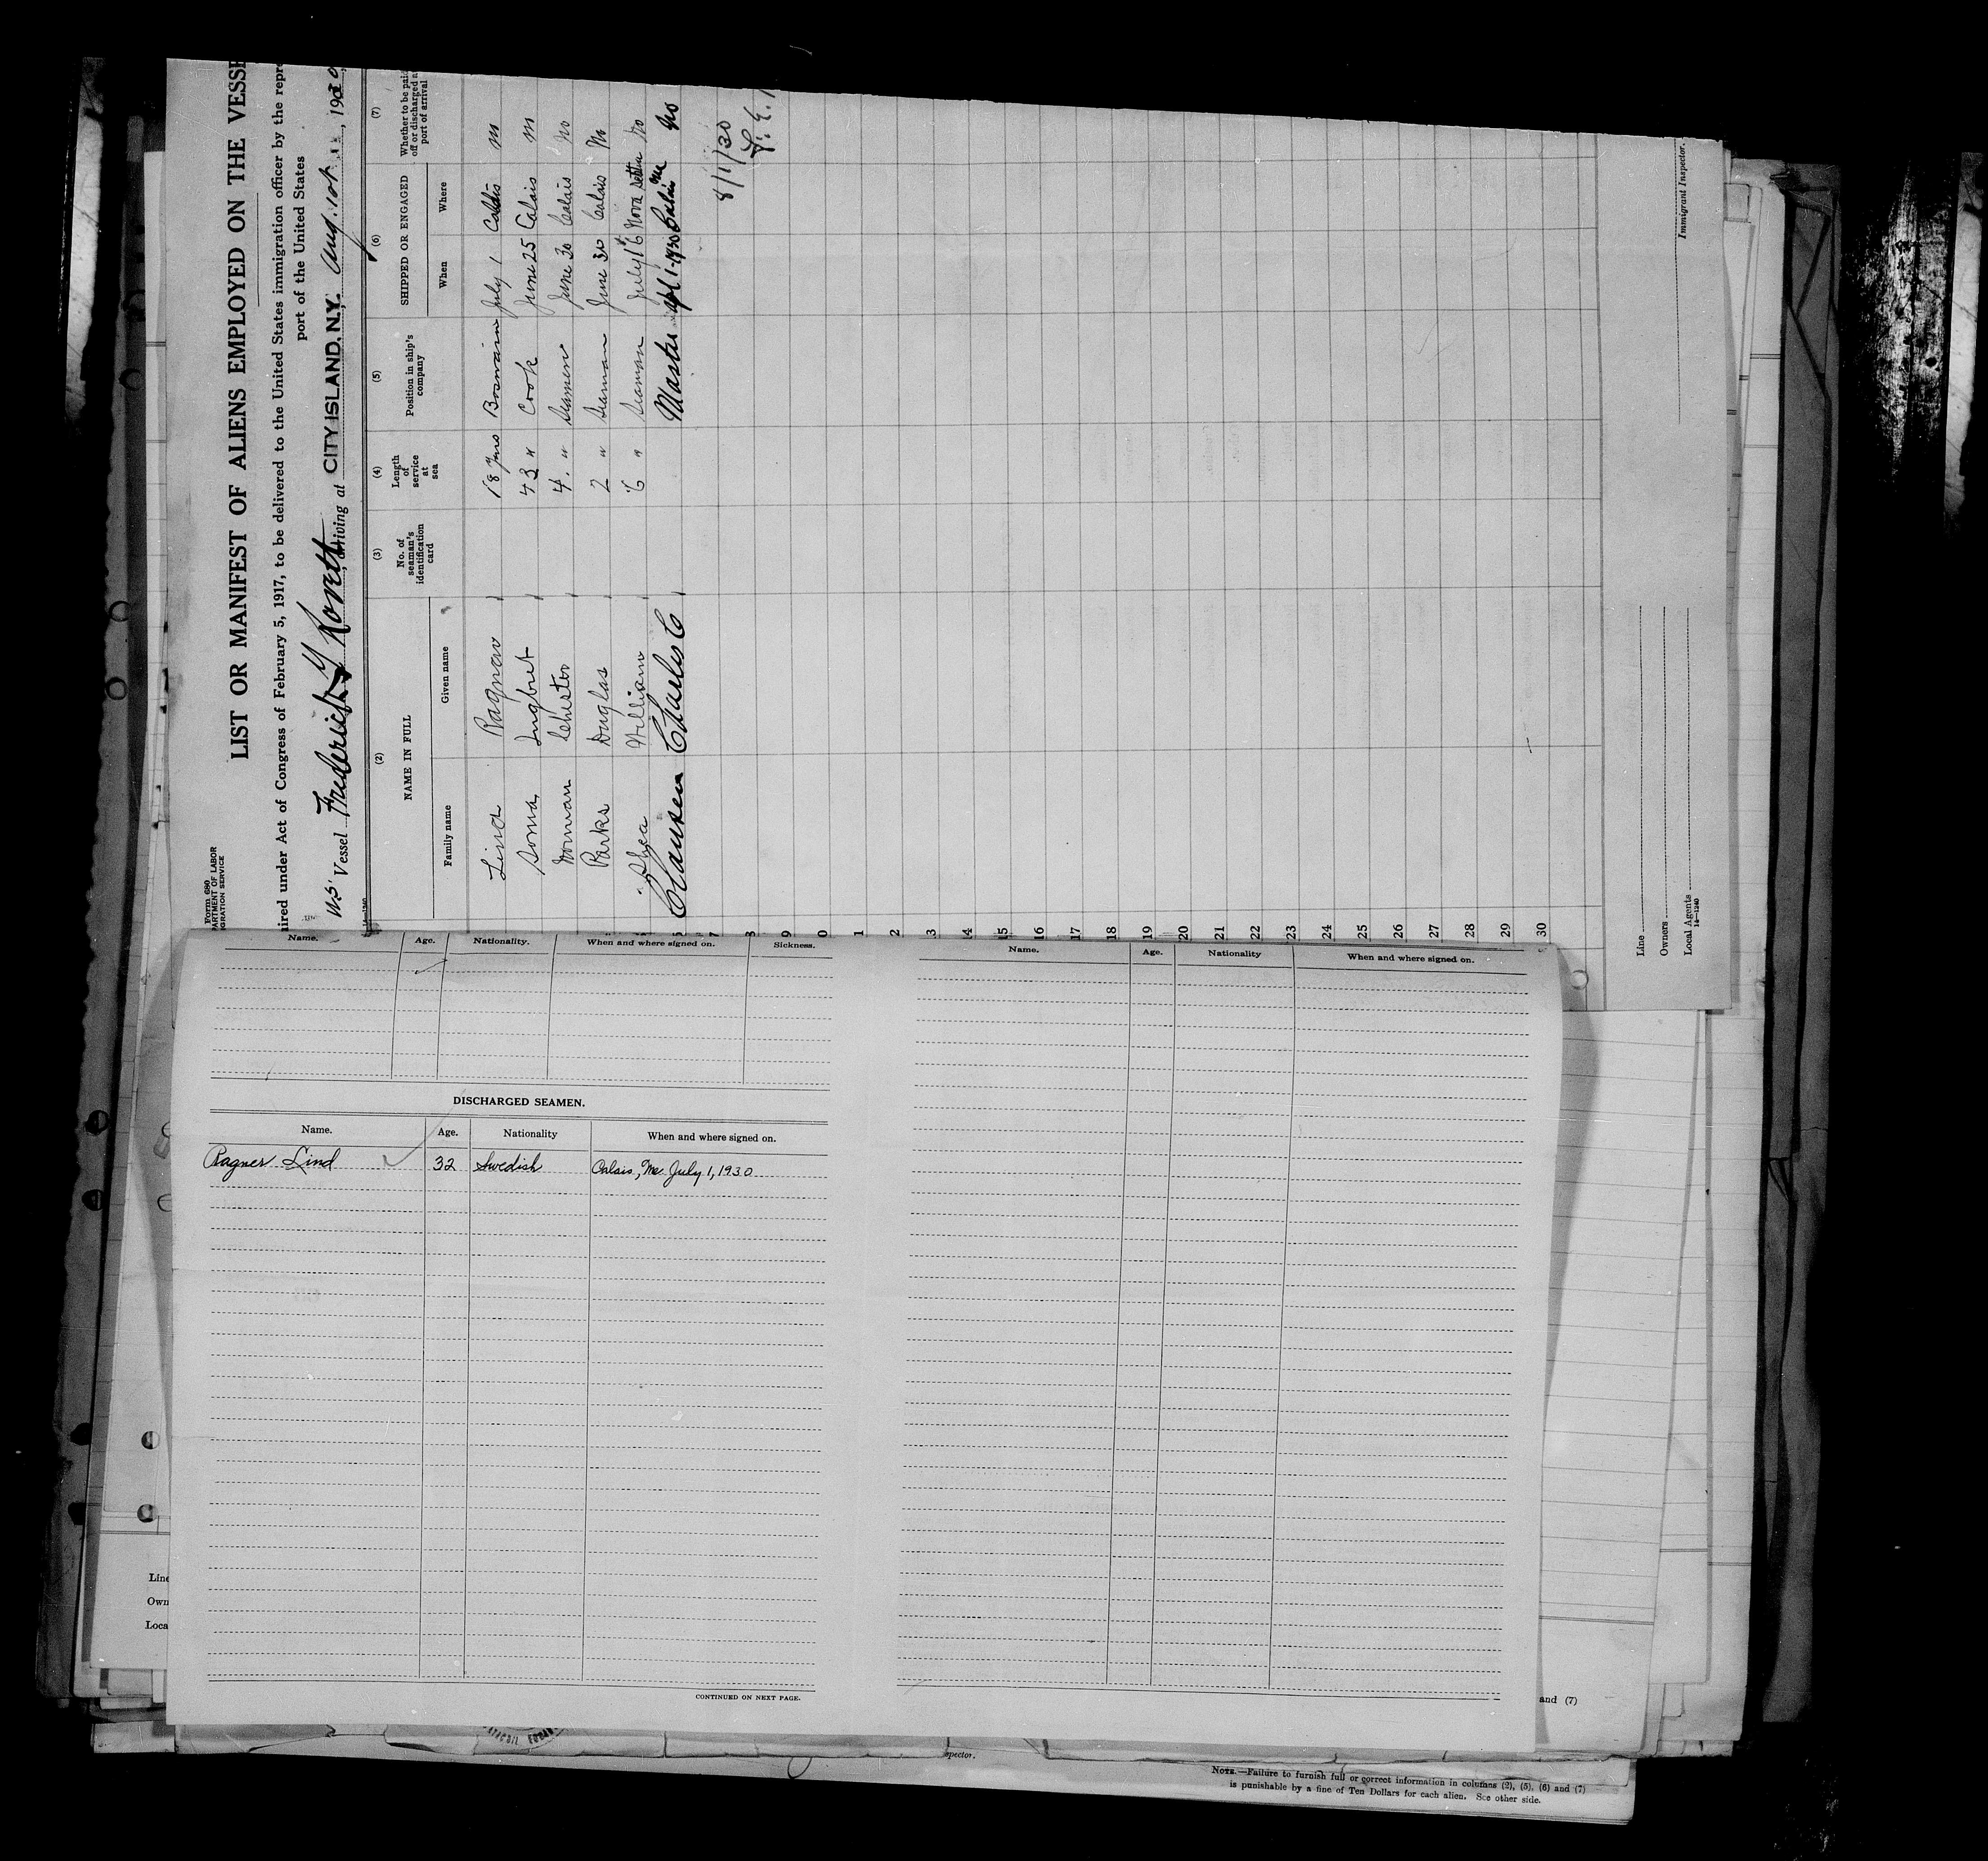 Form 680
ARTMENT OF LABOR
GRATION SERVICE
LIST OR MANIFEST OF ALIENS EMPLOYED ON THE VESSE
ired under Act of Congress of February 5, 1917, to be delivered to the United States immigration officer by the repre
port of the United States
Vessel Frederick arriving at CITY ISLAND, N.Y. Aug. 1st, 1930
(2) (3) (4) (5) (6) (7)
NAME IN FULL
Family name Given name
No. of seaman's identification card
Length of service at sea
Position in ship's company
SHIPPED OR ENGAGED
When Where
Whether to be paid off or discharged at port of arrival
Lind Ragnar 18 Yrs Boswain July 1 Calais
Soma Ingbret 43 " Cook June 25 Calais
Norman Chester 4 " Seaman June 30 Calais No
Parks Duglas 2 " Seaman June 30 Calais No
Shea William 6 " Seaman July 16 Nova Scotia No
Clausen Charles C Master Apl 1-1930 Calais Me No
8/1/30
7
8
9
0
1
2
3
14
15
16
17
18
19
20
21
22
23
24
25
26
27
28
29
30
Line
Owners
Local Agents
14—1240
Immigrant Inspector.
Name. Age. Nationality. When and where signed on. Sickness.
DISCHARGED SEAMEN.
Name. Age. Nationality When and where signed on.
Ragner Lind 32 Swedish Calais, Me. July 1, 1930
CONTINUED ON NEXT PAGE.
Name. Age. Nationality When and where signed on.
Line
Own
Loca
and (7)
spector.
NOTE.—Failure to furnish full or correct information in columns (2), (5), (6) and (7)
is punishable by a fine of Ten Dollars for each alien. See other side.